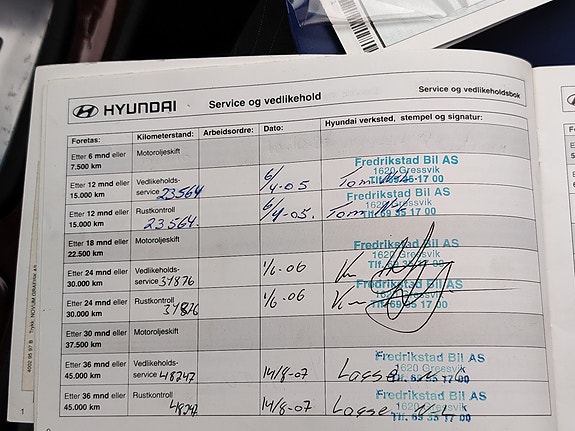 HYUNDAI
Service og vedlikehold
Service og vedlikeholdsbok
Foretas: Kilometerstand: Arbeidsordre: Dato: Hyundai verksted, stempel og signatur:
Etter 6 mnd eller Motoroljeskift
7.500 km
Etter 12 mnd eller Vedlikeholds- 6/ Fredrikstad Bil AS
15.000 km service 23564 4-05 Tom 1620 Gressvik
Tlf. 69 35 17 00
Etter 12 mnd eller Rustkontroll 6/ Fredrikstad Bil AS
15.000 km 23564. 4-05. Tom 1620 Gressvik
Tlf. 69 35 17 00
Etter 18 mnd eller Motoroljeskift
22.500 km
Etter 24 mnd eller Vedlikeholds- 1/6-06 Fredrikstad Bil AS
30.000 km service 31876 1620 Gressvik
Tlf. 69 35 17 00
Etter 24 mnd eller Rustkontroll 1/6-06 Fredrikstad Bil AS
30.000 km 31876 1620 Gressvik
Tlf. 69 35 17 00
Etter 30 mnd eller Motoroljeskift
37.500 km
Etter 36 mnd eller Vedlikeholds- 14/8-07 Fredrikstad Bil AS
45.000 km service 48247 Lasse 1620 Gressvik
Tlf. 69 35 17 00
Etter 36 mnd eller Rustkontroll 14/8-07 Fredrikstad Bil AS
45.000 km 48247 Lasse 1620 Gressvik
Tlf. 69 35 17 00
1